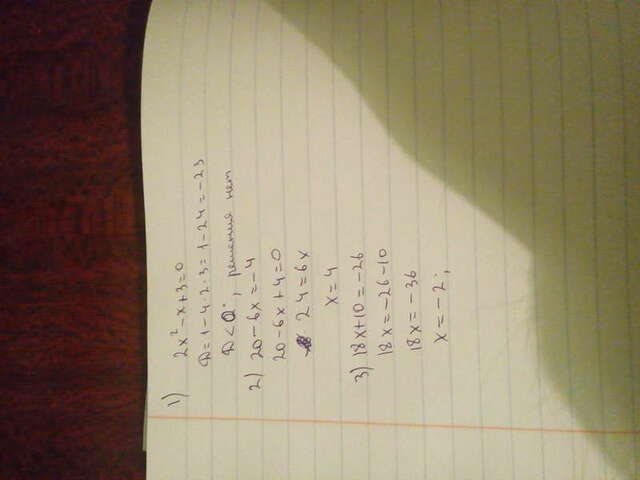 1) 2x² - x + 3 = 0
D = 1 - 4 · 2 · 3 = 1 - 24 = -23
D < 0 ; решения нет
2) 20 - 6x = -4
20 - 6x + 4 = 0
24 = 6x
x = 4
3) 18x + 10 = -26
18x = -26 - 10
18x = -36
x = -2 ;